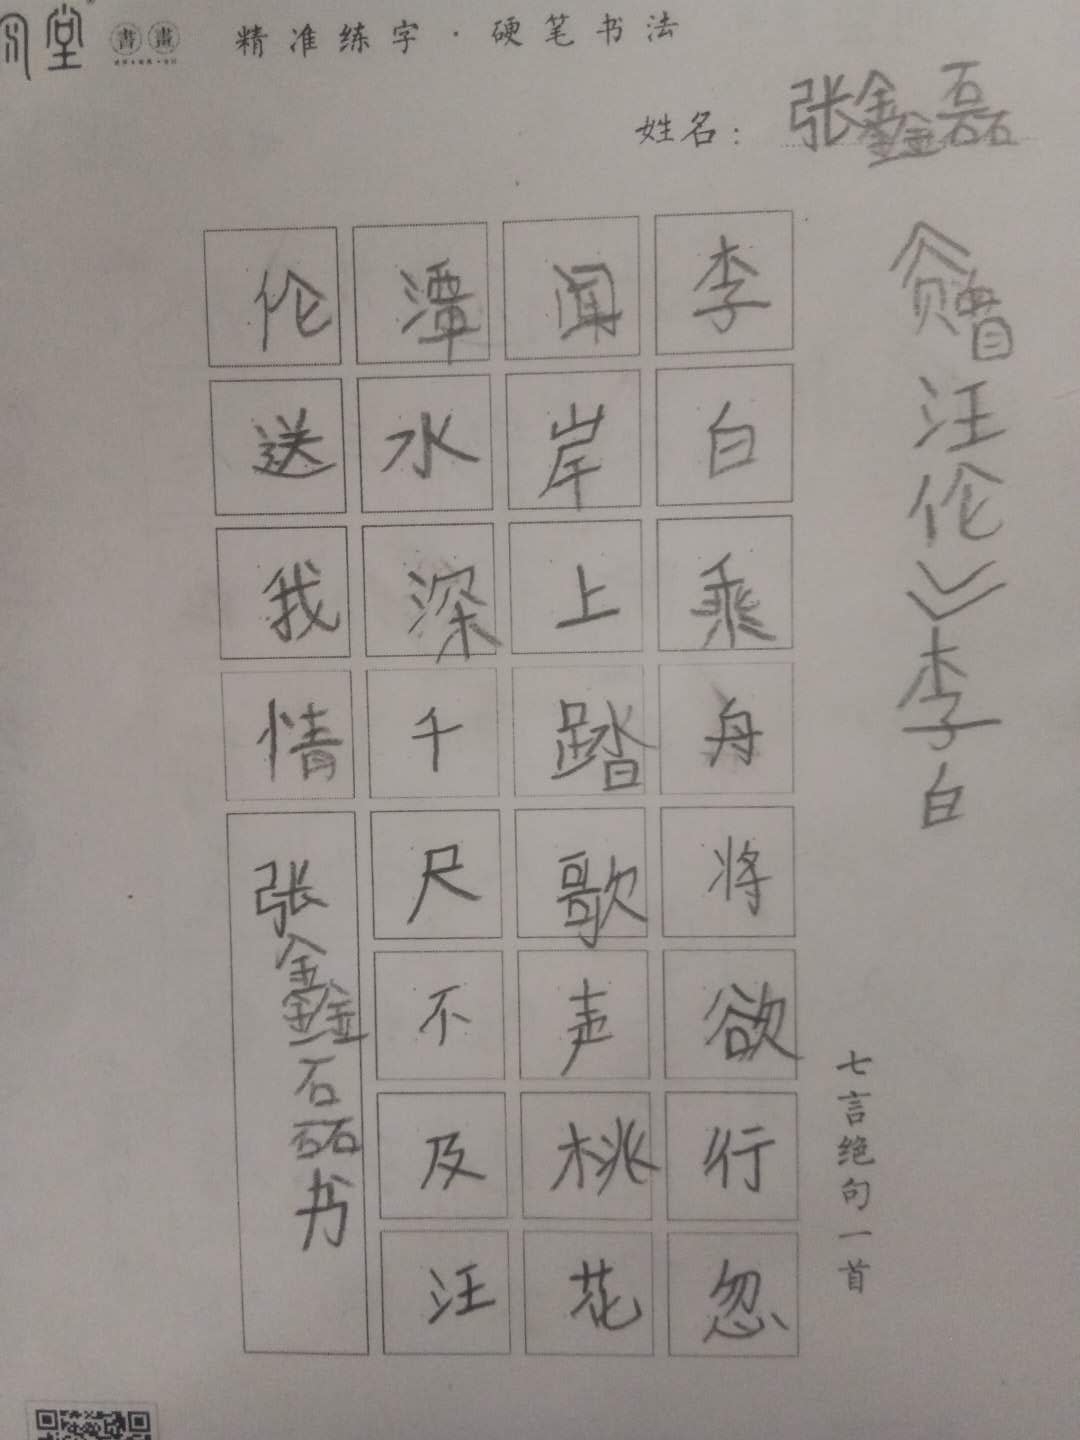 堂
書 畫
精准练字·硬笔书法
姓名：张鑫磊
《赠汪伦》李白
七言绝句一首
李白乘舟将欲行忽
闻岸上踏歌声桃花
潭水深千尺不及汪
伦送我情
张鑫磊书